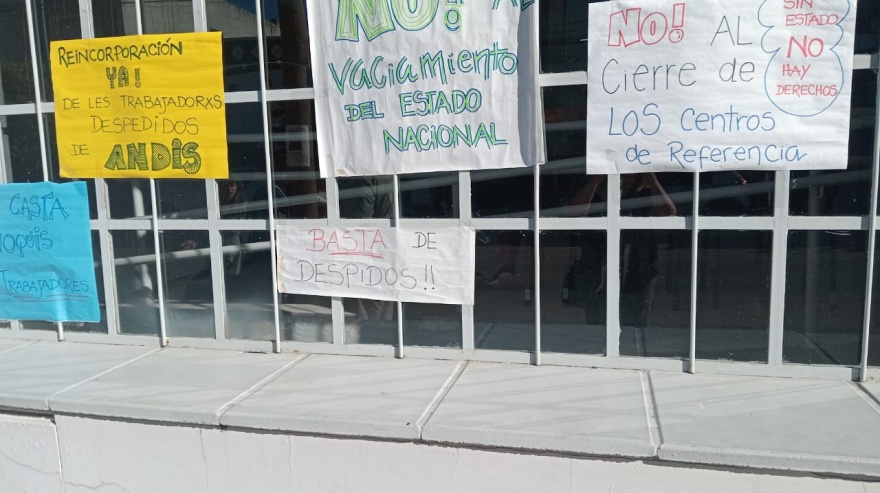 REINCORPORACIÓN
YA!
DE LES TRABAJADORXS
DESPEDIDOS
DE ANDIS
CASTA
ÑOQUIS
TRABAJADORES
NO! AL
VACIAMIENTO
DEL ESTADO
NACIONAL
BASTA DE
DESPIDOS!!
NO! AL
CIERRE DE
LOS CENTROS
DE REFERENCIA
SIN
ESTADO
NO
HAY
DERECHOS